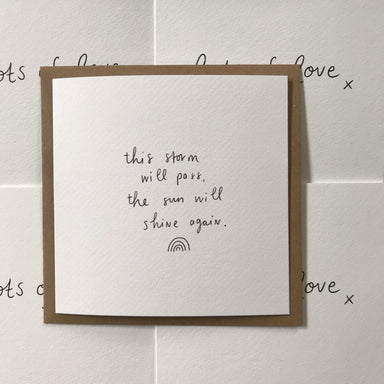 ots of love
lots of love x
this storm
will pass.
the sun will
shine again.
ots o
love x